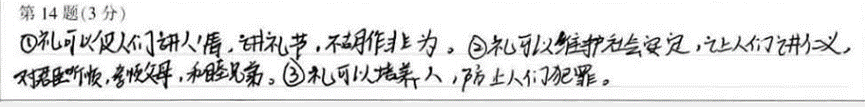 第 14 题(3 分)
①礼可以使人们讲人情,讲礼节,不胡作非为。②礼可以维护社会安定,让人们讲仁义,
对君臣听顺,孝顺父母,和睦兄弟。③礼可以培养人,防止人们犯罪。